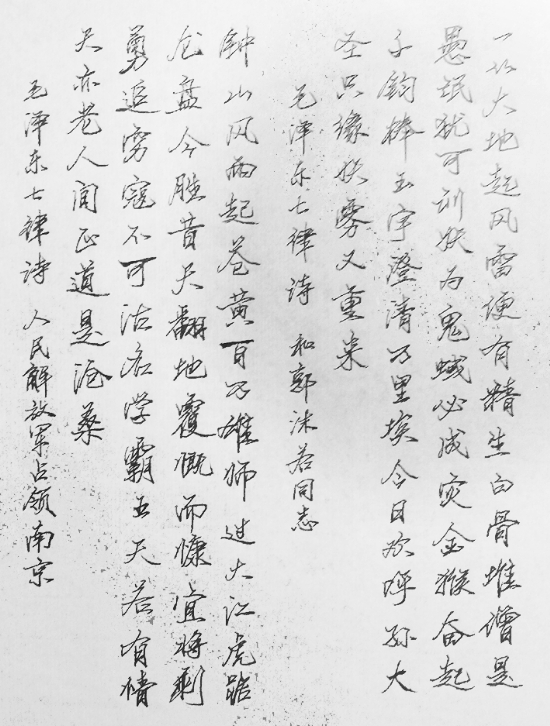 一从大地起风雷便有精生白骨堆僧是
愚氓犹可训妖为鬼蜮必成灾金猴奋起
千钧棒玉宇澄清万里埃今日欢呼孙大
圣只缘妖雾又重来
毛泽东七律诗 和郭沫若同志
钟山风雨起苍黄百万雄师过大江虎踞
龙盘今胜昔天翻地覆慨而慷宜将剩
勇追穷寇不可沽名学霸王天若有情
天亦老人间正道是沧桑
毛泽东七律诗 人民解放军占领南京